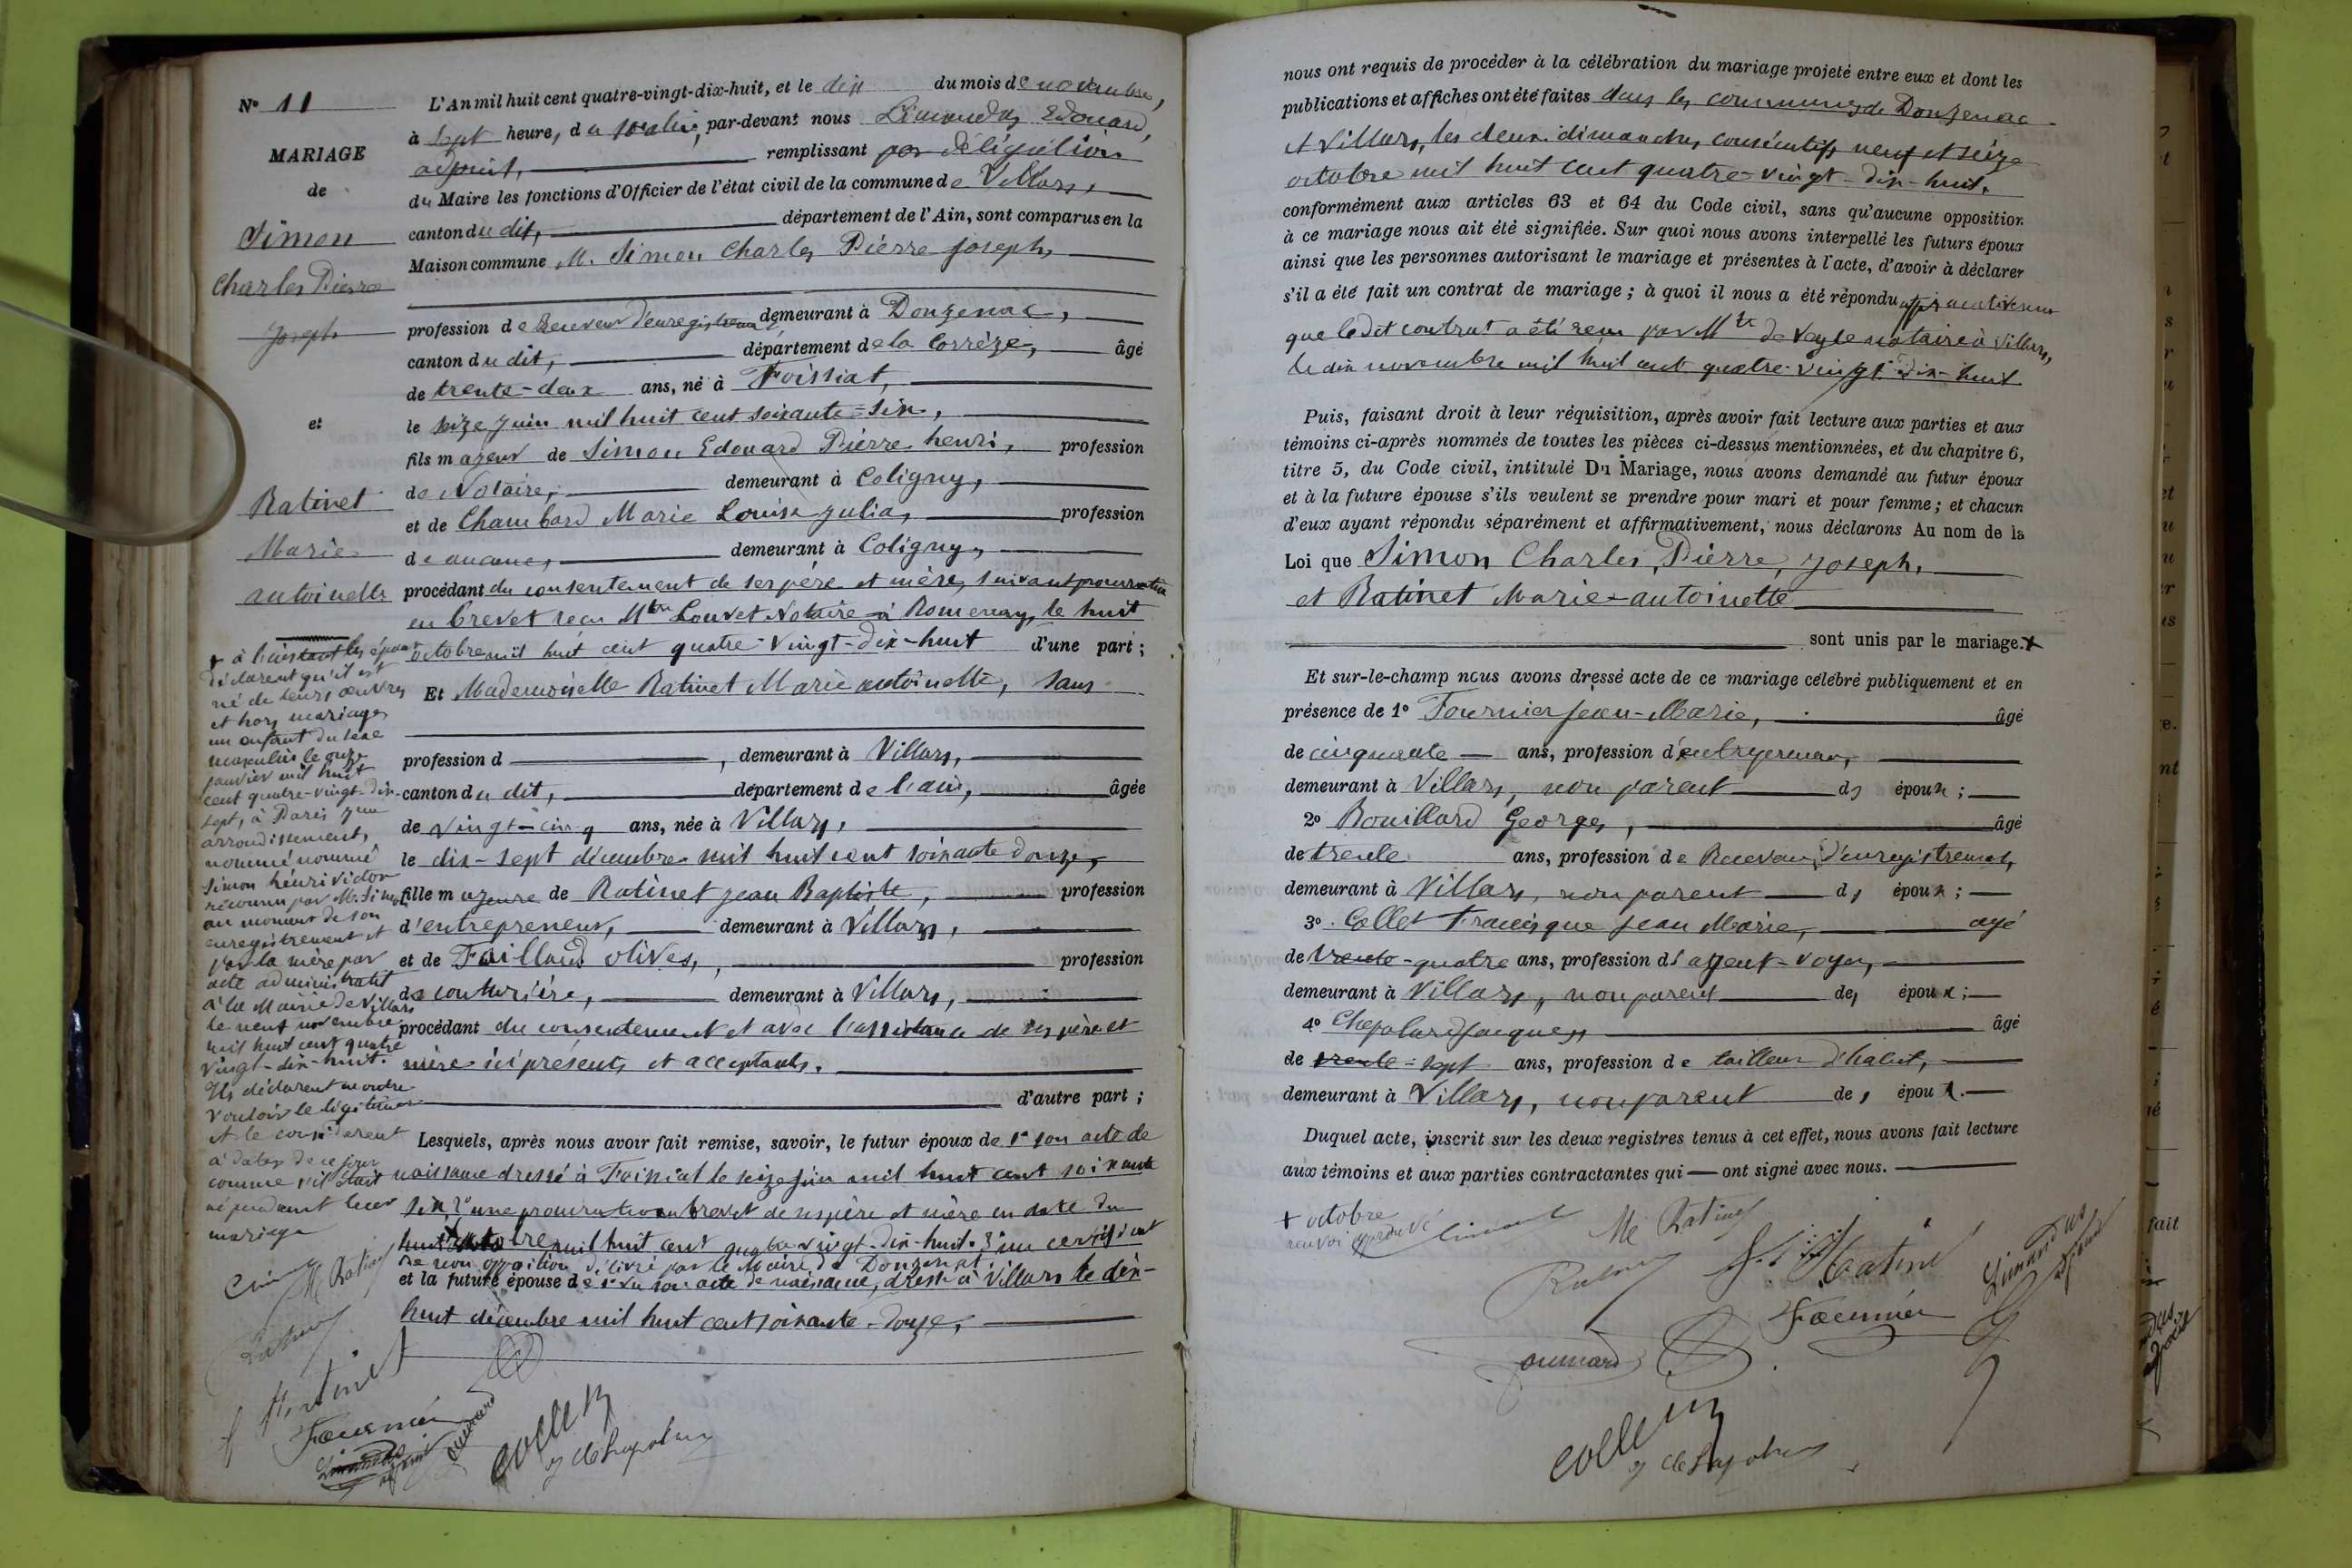 N° 11
MARIAGE
de
Simon
Charles Pierre
Joseph
et
Ratinet
Marie
antoinette
L'An mil huit cent quatre-vingt-dix-huit, et le dix du mois de novembre,
à sept heures du soir, par-devant nous Limandas Edouard,
adjoint, remplissant par délégation
du Maire les fonctions d'Officier de l'état civil de la commune de Villars,
canton du dit, département de l'Ain, sont comparus en la
Maison commune M. Simon Charles Pierre Joseph,
profession de Receveur d'enregistrement demeurant à Donzenac,
canton du dit, département de la Corrèze, âgé
de trente-deux ans, né à Foissiat,
le seize juin mil huit cent soixante-six,
fils majeur de Simon Edouard Pierre henri, profession
de Notaire, demeurant à Coligny,
et de Chambard Marie Louise Julia, profession
de aucune, demeurant à Coligny,
procédant du consentement de ses père et mère, suivant procuration
en brevet reçu Mtre Louvet Notaire à Romenay, le huit
octobre mil huit cent quatre-vingt-dix-huit d'une part ;
Et Mademoiselle Ratinet Marie antoinette, sans
profession d , demeurant à Villars,
canton du dit, département de l'ain, âgée
de vingt-cinq ans, née à Villars,
le dix-sept décembre mil huit cent soixante douze,
fille majeure de Ratinet Jean Baptiste, profession
d'entrepreneur, demeurant à Villars,
et de Faillaud olives, profession
de couturière, demeurant à Villars,
procédant du consentement et avec l'assistance de ses père et
mère ici présents et acceptants.
d'autre part ;
Lesquels, après nous avoir fait remise, savoir, le futur époux de 1° son acte de
naissance dressé à Foissiat le seize juin mil huit cent soixante
six, 2° une procuration en brevet de ses père et mère en date du
huit octobre mil huit cent quatre vingt-dix-huit. 3° un certificat
de non opposition délivré par le Maire de Donzenac.
et la future épouse de son acte de naissance, dressé à Villars le dix-
huit décembre mil huit cent soixante-douze,
+ à l'instant les époux
déclarent qu'il est
né de leurs œuvres
et hors mariage
un enfant du sexe
masculin le onze
janvier mil huit
cent quatre-vingt-dix-
sept, à Paris
arrondissement,
nommé nommé
Simon henri Victor
reconnu par M. Simon
au moment de son
enregistrement et
par la mère par
acte administratif
à la Mairie de Villars
le neuf novembre
mil huit cent quatre
vingt-dix-huit.
Ils déclarent
vouloir le légitimer
et le considèrent
à dater de ce jour
comme s'il était
né pendant leur
mariage
M Ratinet
Ratinet
Fournier
Limandas
adjoint
collet
nous ont requis de procéder à la célébration du mariage projeté entre eux et dont les
publications et affiches ont été faites dans les communes de Donzenac
et Villars, les deux dimanches consécutifs neuf et seize
octobre mil huit cent quatre-vingt-dix-huit,
conformément aux articles 63 et 64 du Code civil, sans qu'aucune opposition
à ce mariage nous ait été signifiée. Sur quoi nous avons interpellé les futurs époux
ainsi que les personnes autorisant le mariage et présentes à l'acte, d'avoir à déclarer
s'il a été fait un contrat de mariage ; à quoi il nous a été répondu affirmativement
que le dit contrat a été reçu par Mtre de Veyle notaire à Villars,
le dix novembre mil huit cent quatre-vingt-dix-huit
Puis, faisant droit à leur réquisition, après avoir fait lecture aux parties et aux
témoins ci-après nommés de toutes les pièces ci-dessus mentionnées, et du chapitre 6,
titre 5, du Code civil, intitulé Du Mariage, nous avons demandé au futur époux
et à la future épouse s'ils veulent se prendre pour mari et pour femme ; et chacun
d'eux ayant répondu séparément et affirmativement, nous déclarons Au nom de la
Loi que Simon Charles, Pierre, Joseph,
et Ratinet Marie-antoinette
sont unis par le mariage. +
Et sur-le-champ nous avons dressé acte de ce mariage célébré publiquement et en
présence de 1° Fournier Jean-Marie, âgé
de cinquante ans, profession d'entrepreneur,
demeurant à Villars, non parent des époux ;
2° Bouillard Georges, âgé
de trente ans, profession de Receveur d'enregistrement,
demeurant à Villars, non parent des époux ;
3° Collet Francisque Jean Marie, agé
de trente-quatre ans, profession d'agent-voyer,
demeurant à Villars, non parent des époux ;
4° Chapolard Jacques, âgé
de trente-sept ans, profession de tailleur d'habit,
demeurant à Villars, non parent des époux.
Duquel acte, inscrit sur les deux registres tenus à cet effet, nous avons fait lecture
aux témoins et aux parties contractantes qui ont signé avec nous.
+ octobre
renvoi approuvé
Me Ratinet
Ratinet
Fournier
Limandas
adjoint
collet
fait